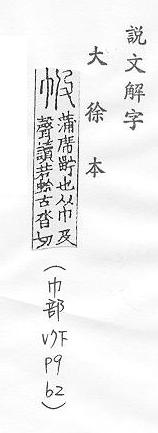 說文解字
大徐本
蒲席也从巾及
聲讀若蛤古沓切
(巾部 V7下 P9 b2)